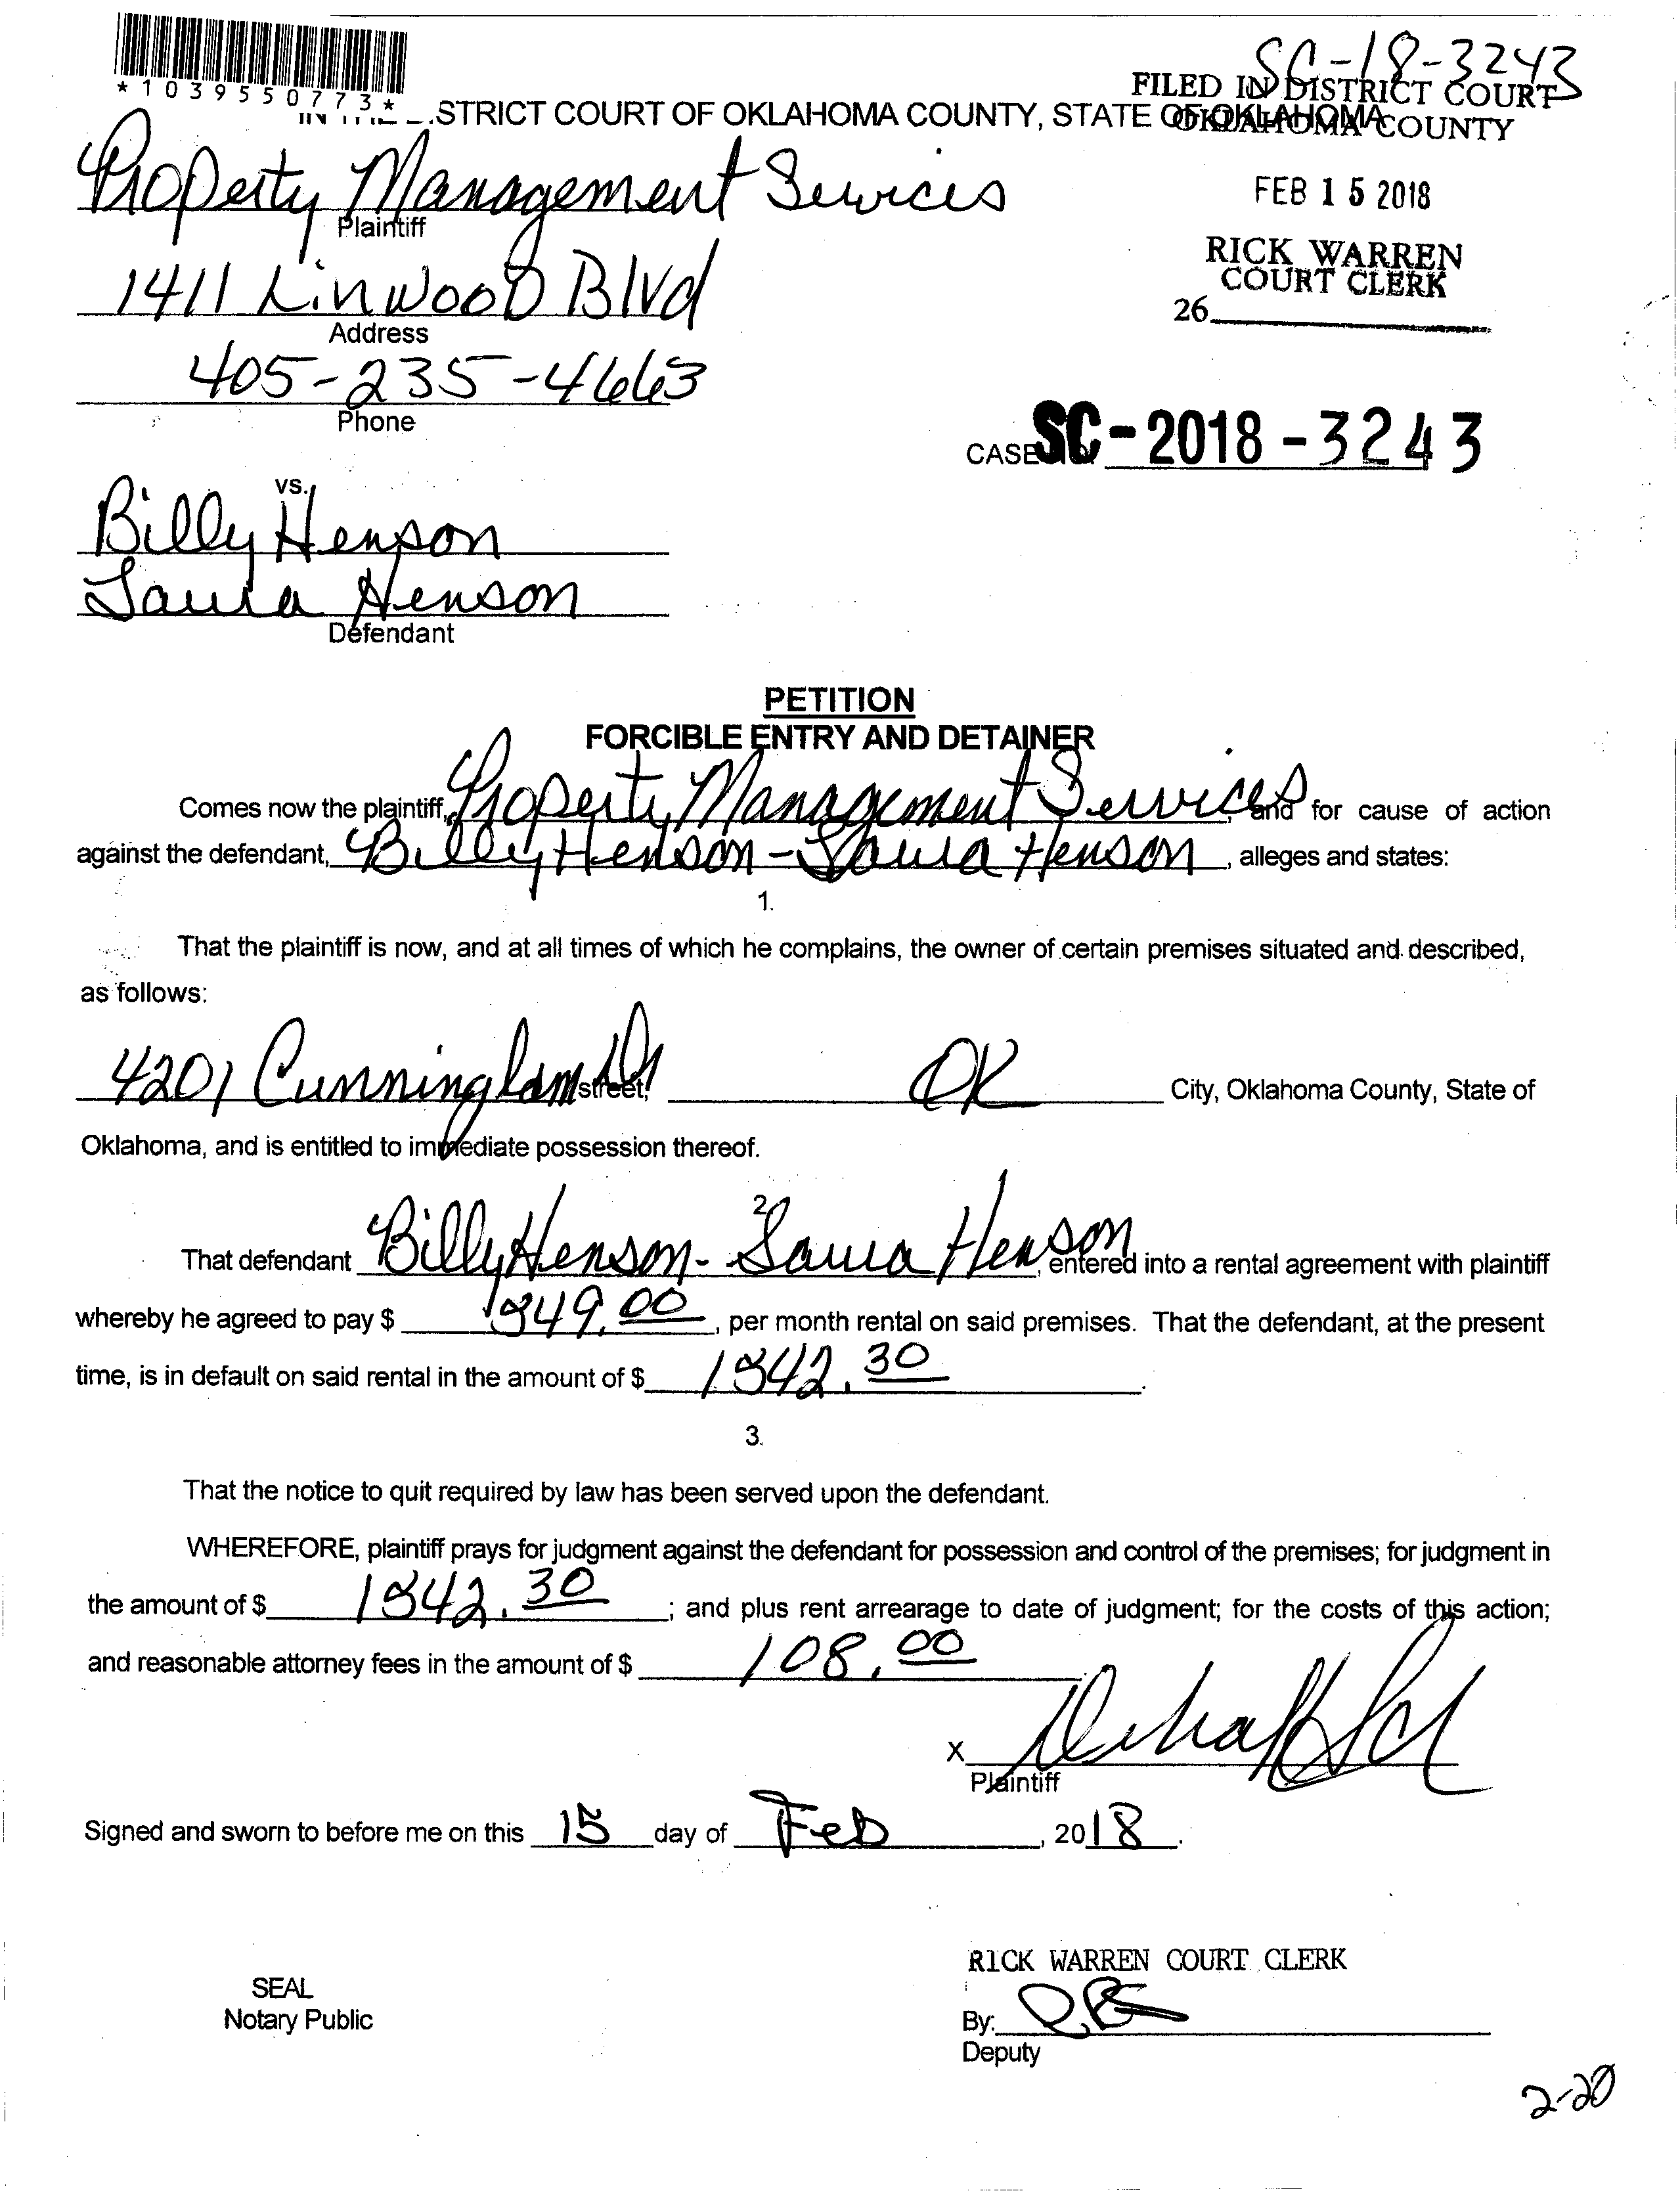 SC-18-3243
*1039550773*
FILED IN DISTRICT COURT
STRICT COURT OF OKLAHOMA COUNTY, STATE OF OKLAHOMA
OKLAHOMA COUNTY
Property Management Services
Plaintiff
FEB 15 2018
1411 Linwood Blvd
Address
RICK WARREN
COURT CLERK
26
405-235-4663
Phone
CASE SC-2018-3243
vs.
Billy Henson
Laura Henson
Defendant
PETITION
FORCIBLE ENTRY AND DETAINER
Comes now the plaintiff, Property Management Services, and for cause of action
against the defendant, Billy Henson - Laura Henson, alleges and states:
1.
That the plaintiff is now, and at all times of which he complains, the owner of certain premises situated and described,
as follows:
4201 Cunningham Dr street, OK City, Oklahoma County, State of
Oklahoma, and is entitled to immediate possession thereof.
2.
That defendant Billy Henson - Laura Henson, entered into a rental agreement with plaintiff
whereby he agreed to pay $ , per month rental on said premises. That the defendant, at the present
time, is in default on said rental in the amount of $ .
3.
That the notice to quit required by law has been served upon the defendant.
WHEREFORE, plaintiff prays for judgment against the defendant for possession and control of the premises; for judgment in
the amount of $ ; and plus rent arrearage to date of judgment; for the costs of this action;
and reasonable attorney fees in the amount of $ 108.00
X
Plaintiff
Signed and sworn to before me on this 15 day of Feb, 2018.
RICK WARREN COURT CLERK
SEAL
Notary Public
By:
Deputy
2-20